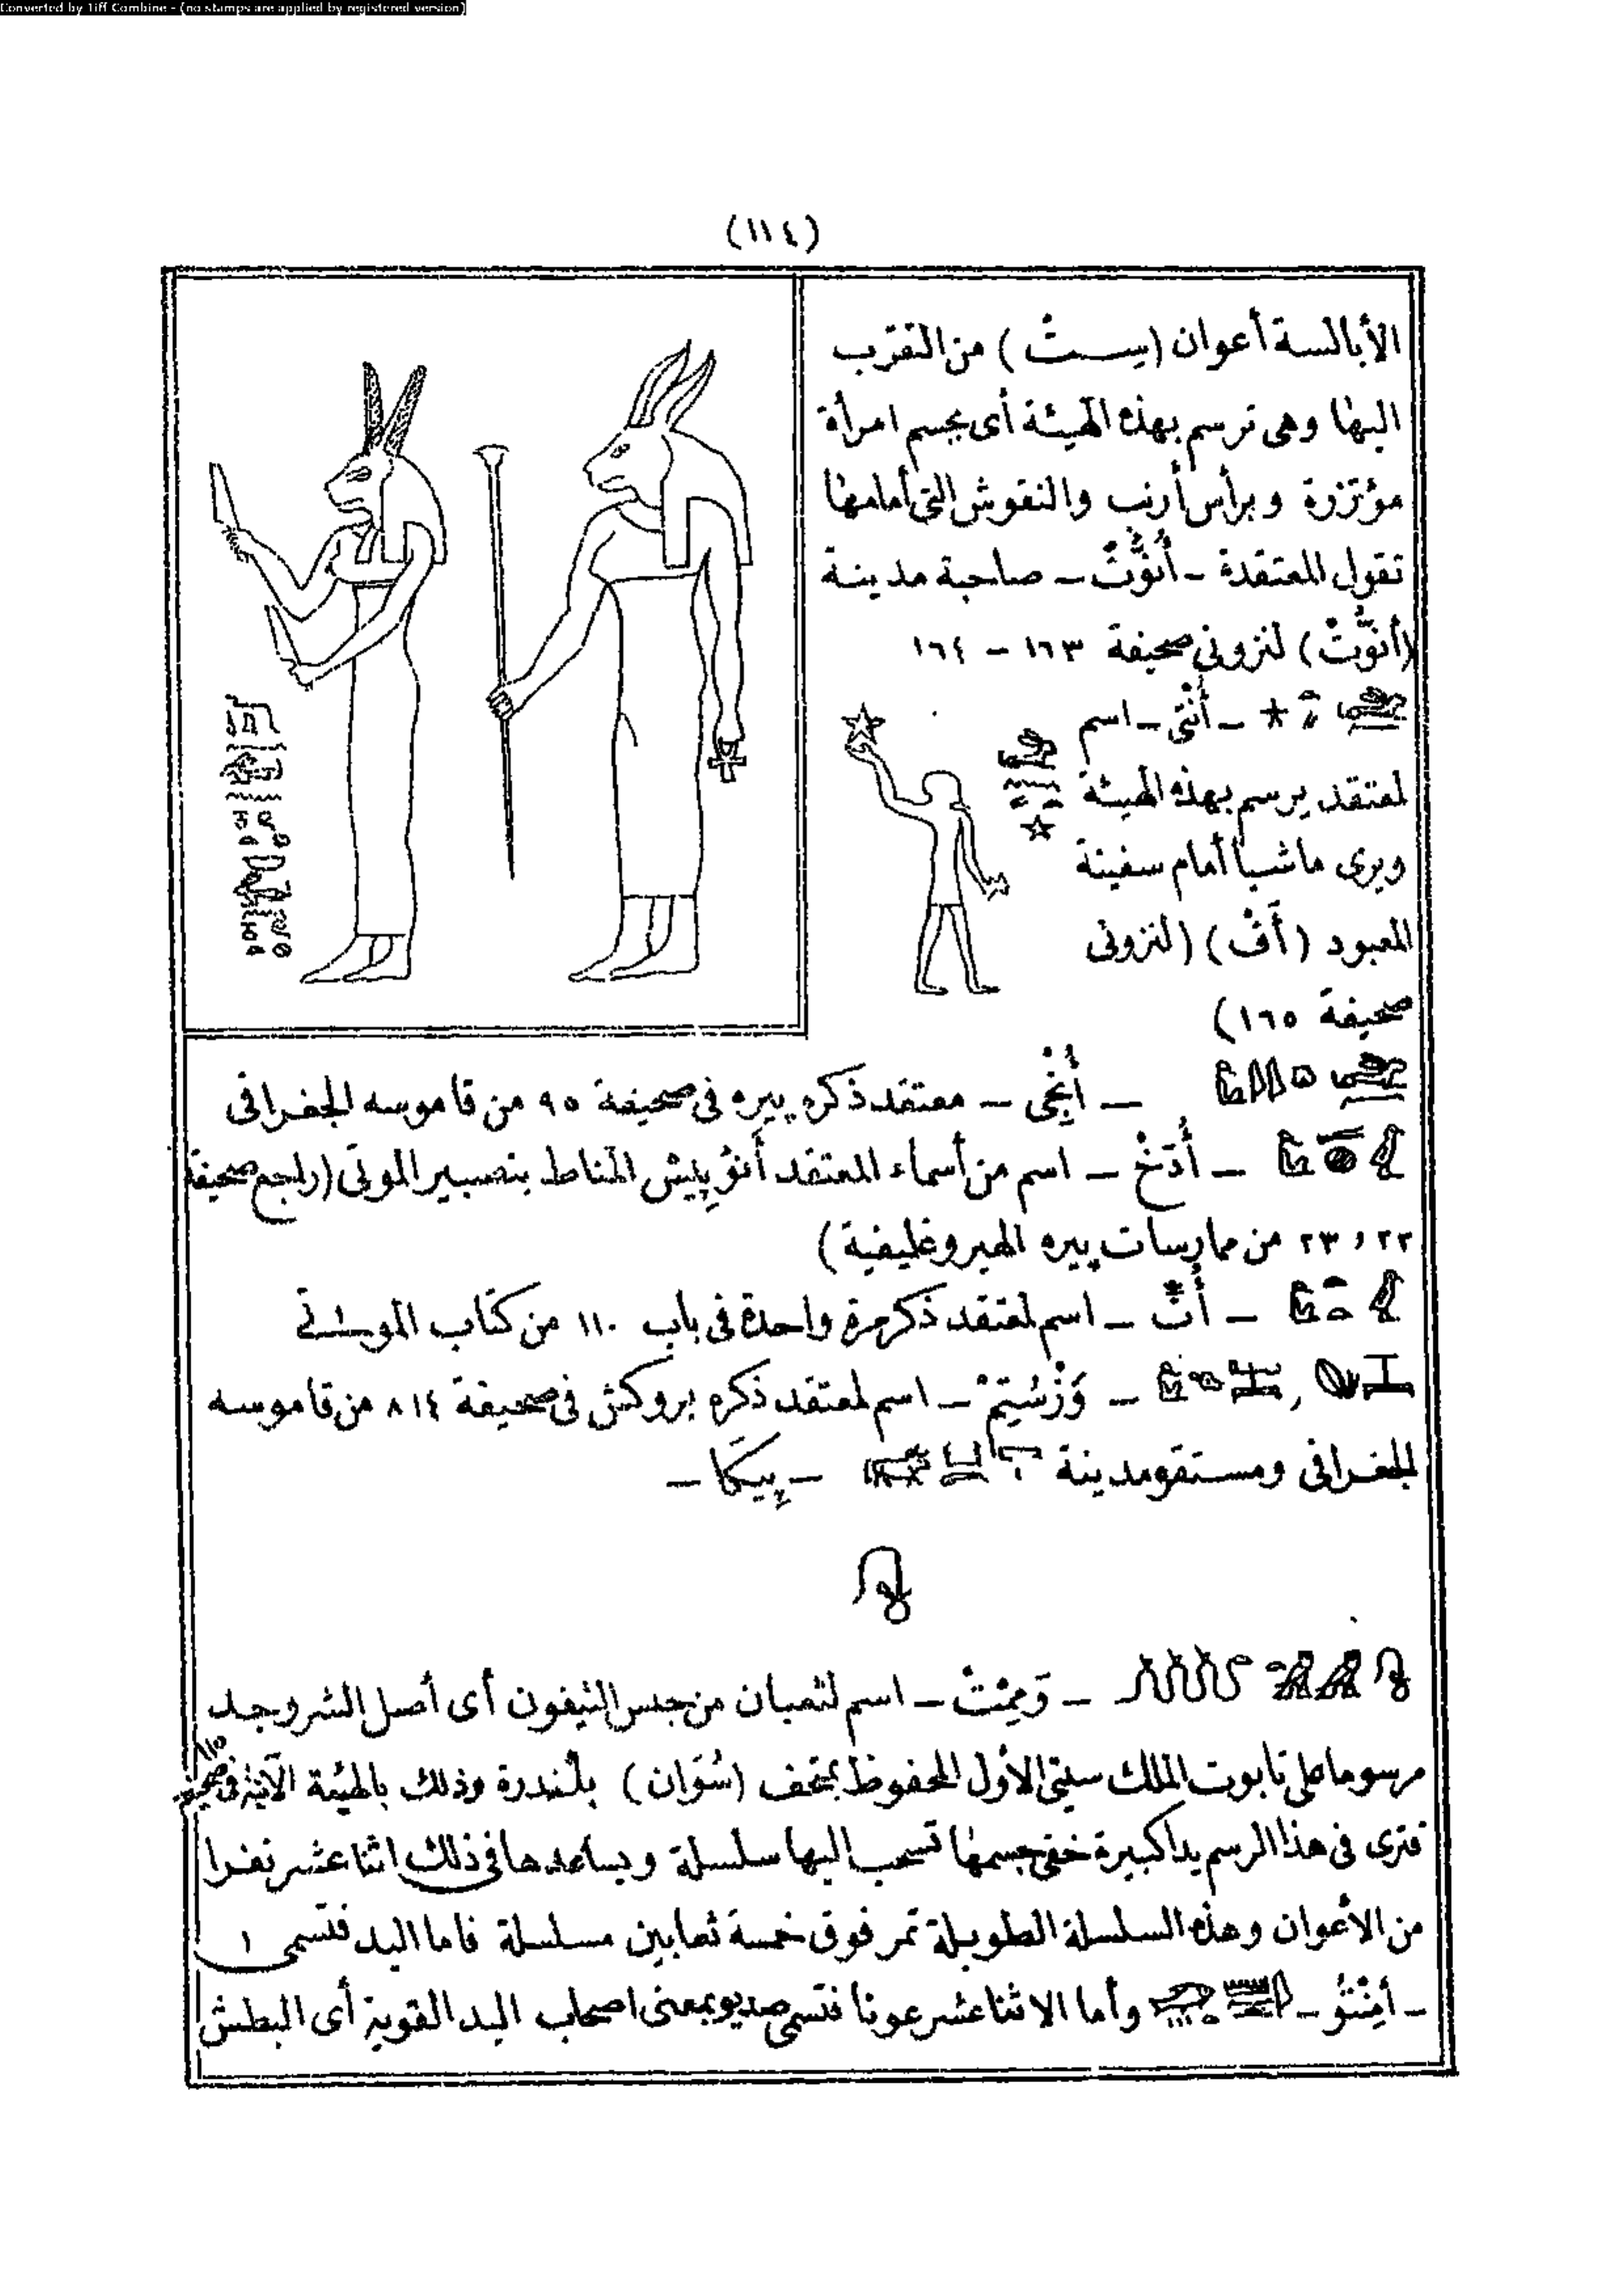 Converted by Tiff Combine - (no stamps are applied by registered version)
(١١٤)
الأبالسة أعوان (سِــتْ) من التقرّب
اليها وهى ترسم بهذه الهيئة أى بجسم امرأة
مؤتزرة وبرأس أرنب والنقوش التى أمامها
تقول المعتقدة – أُنوُّتْ – صاحبة مدينة
(أنوُّتْ) لنزونى صحيفة ١٦٣ – ١٦٤
– أُنْتِى – اسم
لمعتقد يرسم بهذه الهيئة
ويرى ماشيا أمام سفينة
المعبود (أَفْ) (لنزونى
صحيفة ١٦٥)
– – معتقد ذكره پيره فى صحيفة ٩٥ من قاموسه الجغرافى
– – اسم من أسماء المعتقد أَنوُپِيسْ المناط بتصبير الموتى (راجع صحيفة
٢٢ و ٢٣ من ممارسات پيره الهيروغليفية)
– أُتّ – اسم لمعتقد ذكر مرة واحدة فى باب ١١٠ من كتاب الموتى
, – – اسم لمعتقد ذكره بروكش فى صحيفة ٨١٤ من قاموسه
الجغرافى ومستقره مدينة – پِيكَا –
– وَمِمْتْ – اسم لثعبان من جنس التيفون أى أصل الشر وجد
مرسوما على تابوت الملك سيتى الأول المحفوظ بمتحف (سُوَان) بلندرة وذلك بالهيئة الآتية فى صحيفة ١١٥
فترى فى هذا الرسم يدا كبيرة خفى جسمها تسحب اليها سلسلة ويساعدها فى ذلك اثنا عشر نفرا
من الأعوان وهذه السلسلة الطويلة تمر فوق خمسة ثعابين مسلسلة فاما اليد فتسمى
– أمِنْتُو – وأما الاثنا عشر عونا فتسمى بمعنى اصحاب اليد القوية أى البطش